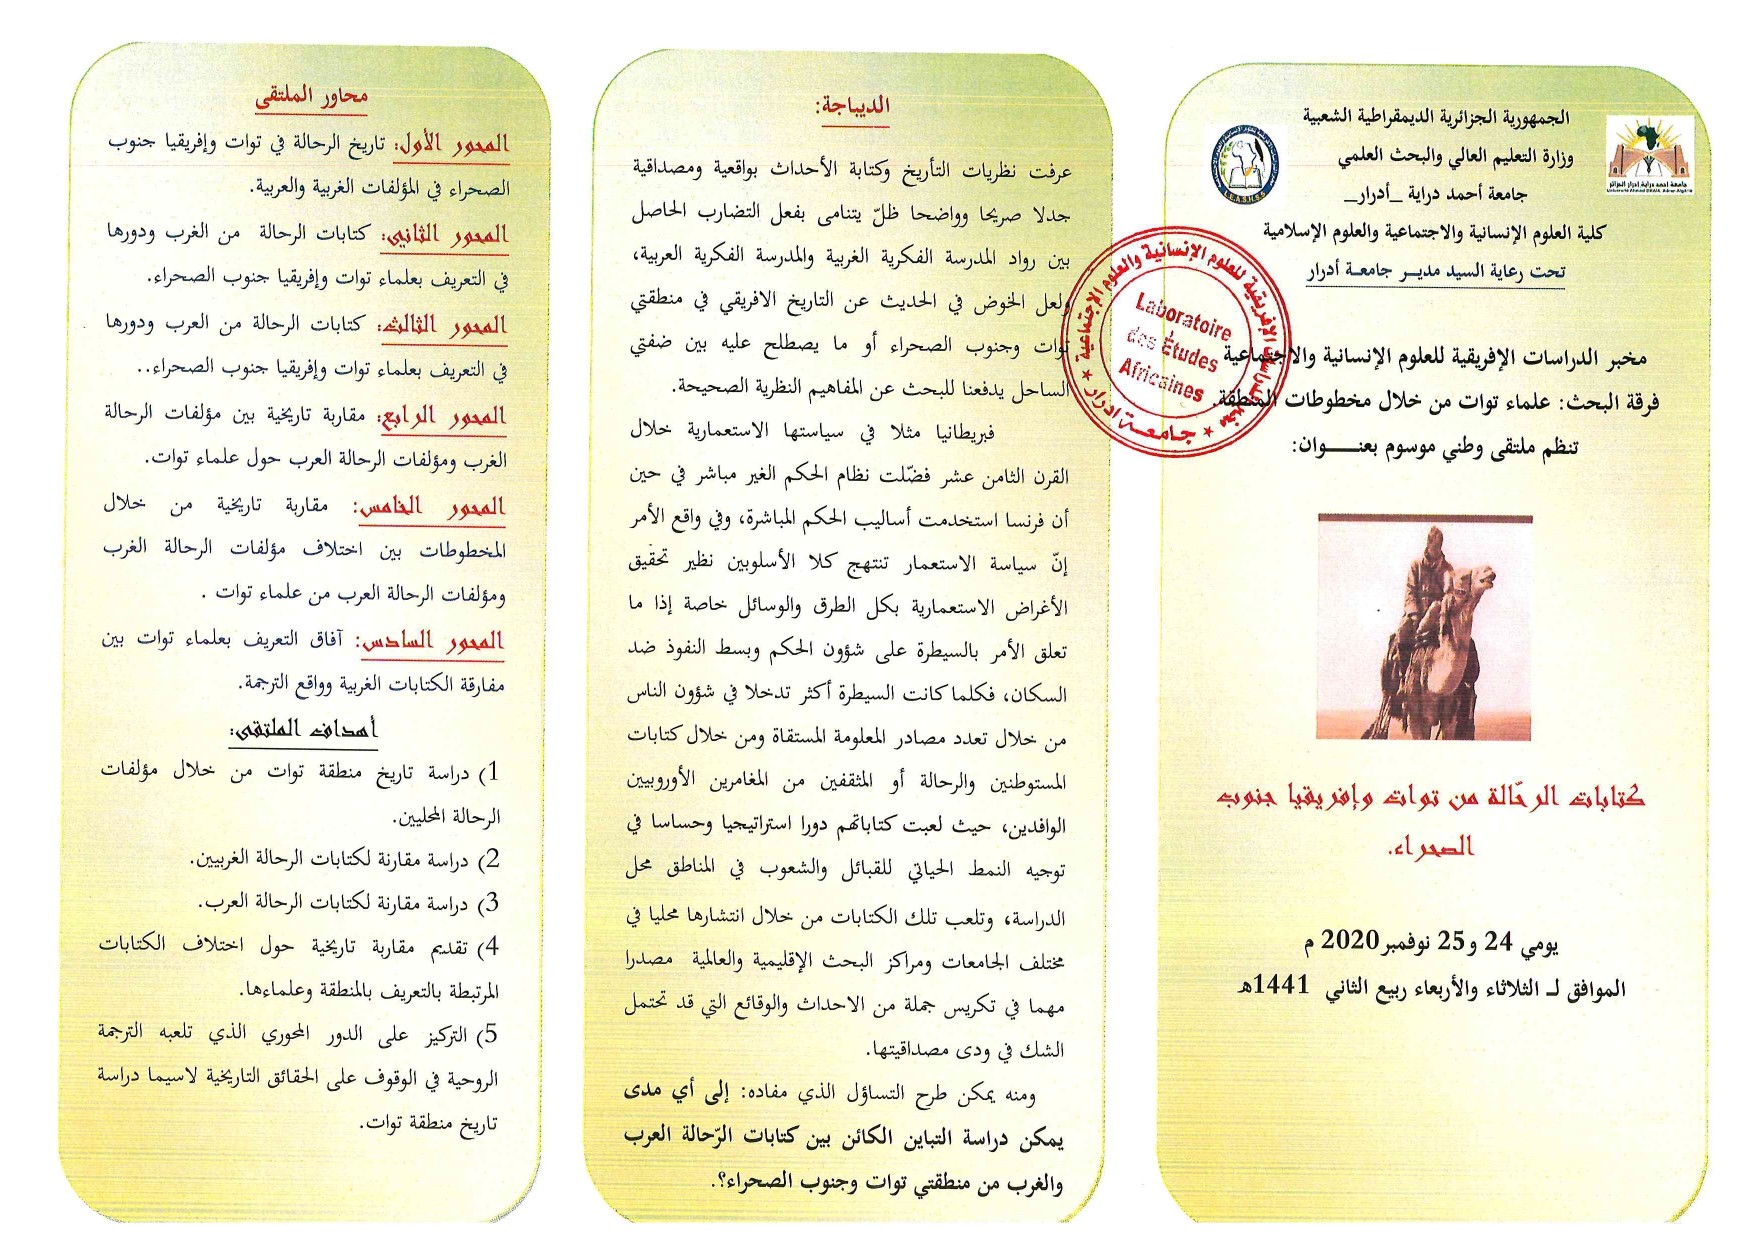 الجمهورية الجزائرية الديمقراطية الشعبية
وزارة التعليم العالي والبحث العلمي
جامعة أحمد دراية _أدرار_
كلية العلوم الإنسانية والاجتماعية والعلوم الإسلامية
تحت رعاية السيد مديـر جامعـة أدرار
جامعة احمد دراية أدرار الجزائر
L.E.A.S.H.S.S
مخبر الدراسات الإفريقية للعلوم الإنسانية والاجتماعية
فرقة البحث: علماء توات من خلال مخطوطات المنطقة.
تنظم ملتقى وطني موسوم بعنـــــوان:
كتابات الرحّالة من توات وإفريقيا جنوب
الصحراء.
يومي 24 و25 نوفمبر2020 م
الموافق لـ الثلاثاء والأربعاء ربيع الثاني 1441هـ
Laboratoire
des Études
Africaines
جامعـة ادرار
الديباجة:
عرفت نظريات التأريخ وكتابة الأحداث بواقعية ومصداقية
جدلا صريحا وواضحا ظلّ يتنامى بفعل التضارب الحاصل
بين رواد المدرسة الفكرية الغربية والمدرسة الفكرية العربية،
ولعل الخوض في الحديث عن التاريخ الافريقي في منطقتي
توات وجنوب الصحراء أو ما يصطلح عليه بين ضفتي
الساحل يدفعنا للبحث عن المفاهيم النظرية الصحيحة.
فبريطانيا مثلا في سياستها الاستعمارية خلال
القرن الثامن عشر فضّلت نظام الحكم الغير مباشر في حين
أن فرنسا استخدمت أساليب الحكم المباشرة، وفي واقع الأمر
إنّ سياسة الاستعمار تنتهج كلا الأسلوبين نظير تحقيق
الأغراض الاستعمارية بكل الطرق والوسائل خاصة إذا ما
تعلق الأمر بالسيطرة على شؤون الحكم وبسط النفوذ ضد
السكان، فكلما كانت السيطرة أكثر تدخلا في شؤون الناس
من خلال تعدد مصادر المعلومة المستقاة ومن خلال كتابات
المستوطنين والرحالة أو المثقفين من المغامرين الأوروبيين
الوافدين، حيث لعبت كتاباتهم دورا استراتيجيا وحساسا في
توجيه النمط الحياتي للقبائل والشعوب في المناطق محل
الدراسة، وتلعب تلك الكتابات من خلال انتشارها محليا في
مختلف الجامعات ومراكز البحث الإقليمية والعالمية مصدرا
مهما في تكريس جملة من الاحداث والوقائع التي قد تحتمل
الشك في ودى مصداقيتها.
ومنه يمكن طرح التساؤل الذي مفاده: إلى أي مدى
يمكن دراسة التباين الكائن بين كتابات الرّحالة العرب
والغرب من منطقتي توات وجنوب الصحراء؟.
محاور الملتقى
المحور الأول: تاريخ الرحالة في توات وإفريقيا جنوب
الصحراء في المؤلفات الغربية والعربية.
المحور الثاني: كتابات الرحالة من الغرب ودورها
في التعريف بعلماء توات وإفريقيا جنوب الصحراء.
المحور الثالث: كتابات الرحالة من العرب ودورها
في التعريف بعلماء توات وإفريقيا جنوب الصحراء..
المحور الرابع: مقاربة تاريخية بين مؤلفات الرحالة
الغرب ومؤلفات الرحالة العرب حول علماء توات.
المحور الخامس: مقاربة تاريخية من خلال
المخطوطات بين اختلاف مؤلفات الرحالة الغرب
ومؤلفات الرحالة العرب من علماء توات .
المحور السادس: آفاق التعريف بعلماء توات بين
مفارقة الكتابات الغربية وواقع الترجمة.
أهداف الملتقى:
1) دراسة تاريخ منطقة توات من خلال مؤلفات
الرحالة المحليين.
2) دراسة مقارنة لكتابات الرحالة الغربيين.
3) دراسة مقارنة لكتابات الرحالة العرب.
4) تقديم مقاربة تاريخية حول اختلاف الكتابات
المرتبطة بالتعريف بالمنطقة وعلماءها.
5) التركيز على الدور المحوري الذي تلعبه الترجمة
الروحية في الوقوف على الحقائق التاريخية لاسيما دراسة
تاريخ منطقة توات.